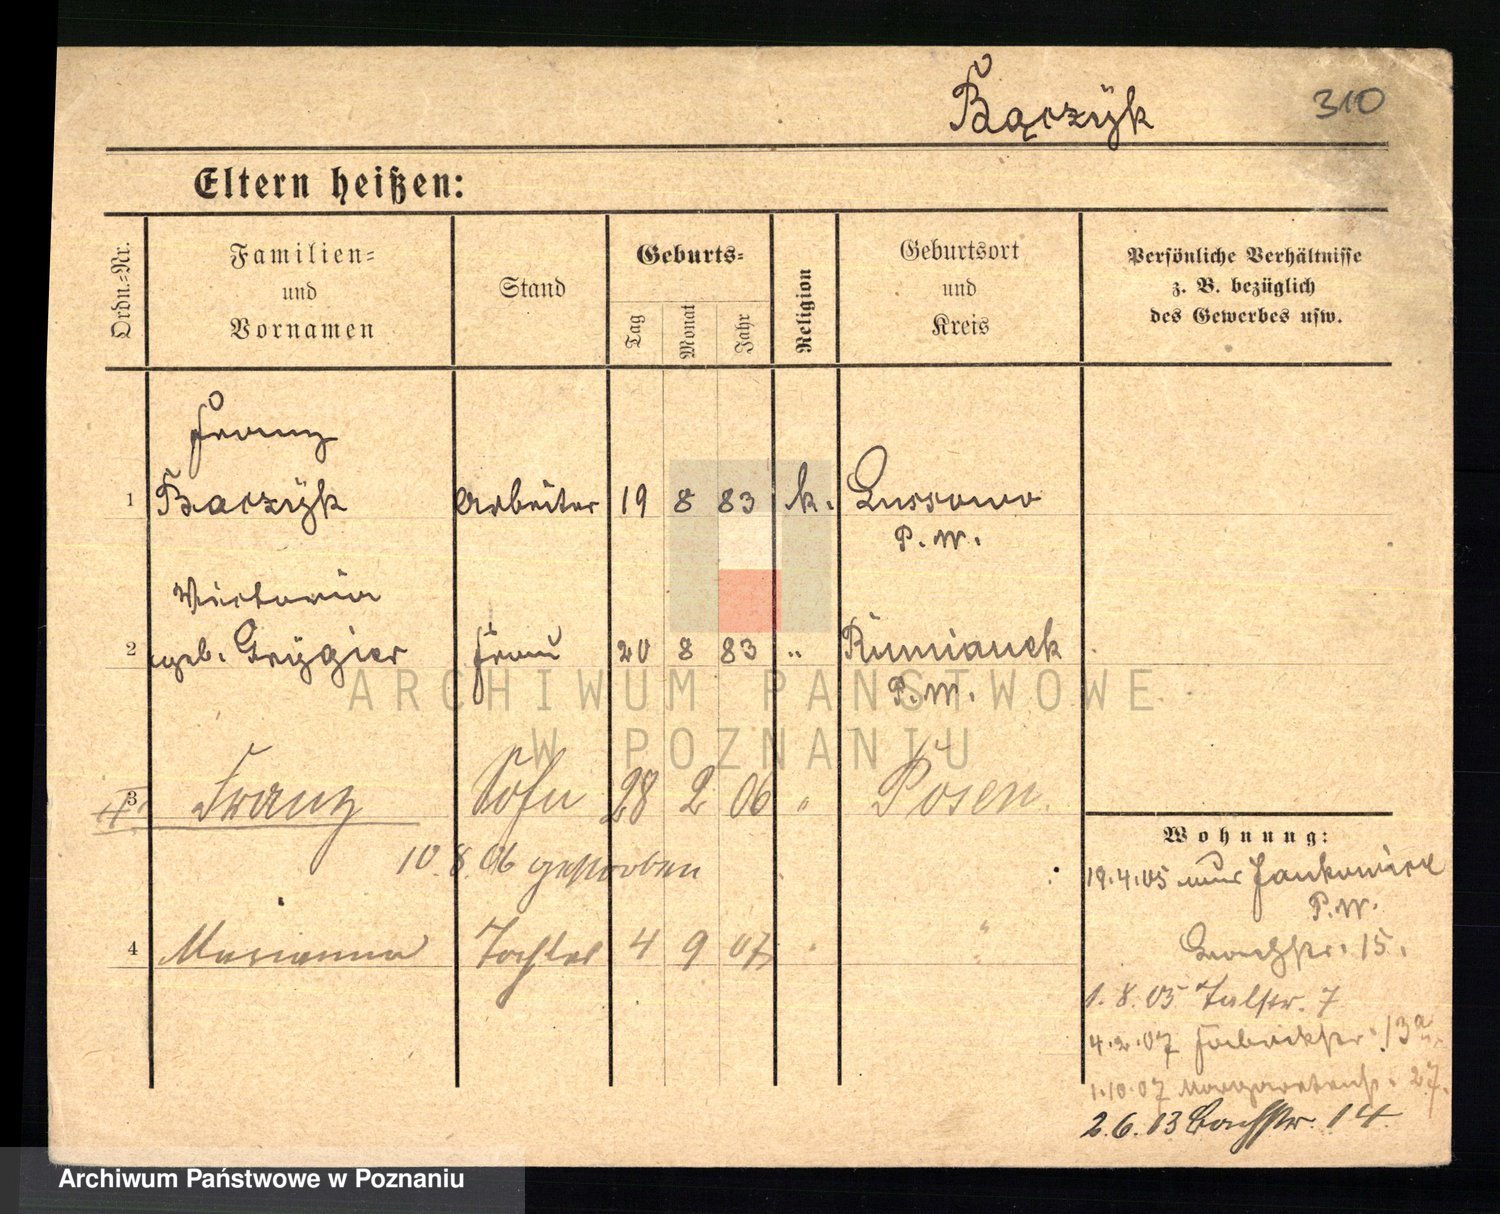 Bączÿk
310
Eltern heißen:
Ordn.-Nr.
Familien-
und
Vornamen
Stand
Geburts-
Tag
Monat
Jahr
Religion
Geburtsort
und
Kreis
Persönliche Verhältnisse
z. B. bezüglich
des Gewerbes usw.
Franz
1 Baczÿk Arbeiter 19 8 83 k. Lussowo
P. W.
Victoria
2 geb. Grÿgier Frau 20 8 83 " Rumianek
P. W.
3 Franz Sohn 28 2 06 " Posen.
10. 8. 06 gestorben
4 Marianna Tochter 4 9 07 " "
Wohnung:
19.4.05 aus Jankowice
P. W.
Bachstr. 15.
1. 8. 05 Talstr. 7
4.2.07 Fabrikstr. 13a
1.10.07 Margaretenstr. 27.
2.6.13 Bachstr. 14
ARCHIWUM PAŃSTWOWE
W POZNANIU
Archiwum Państwowe w Poznaniu